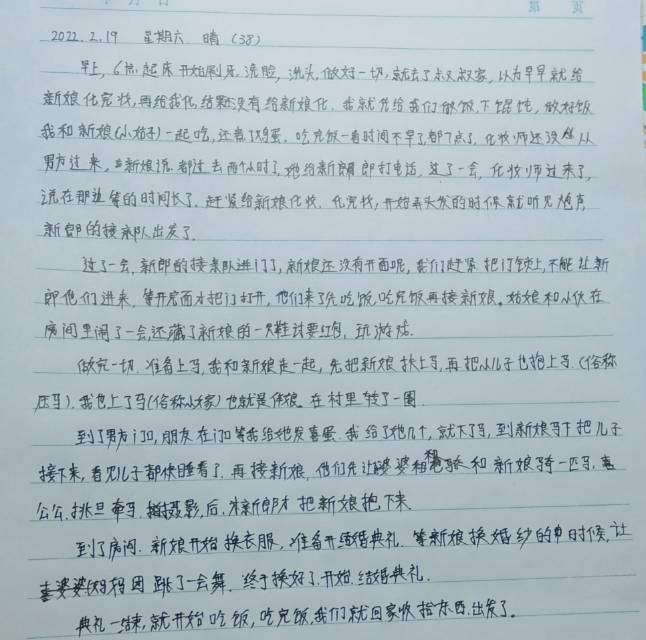 2022.2.19 星期六 晴 (38)
早上,6点起床开始刷牙.洗脸,洗头.做好一切,就去了叔叔家,以为早早就给
新娘化完妆,再给我化,结果没有给新娘化.我就先给我们做饭,下馄饨,做好饭
我和新娘(小姑子)一起吃,还煮了鸡蛋.吃完饭一看时间不早了,都7点了,化妆师还没从
男方过来,新娘说.都过去两个小时了,她给新郎打电话.过了一会,化妆师过来了,
说在那边等的时间长了.赶紧给新娘化妆.化完妆,开始弄头发的时候就听见炮声,
新郎的接亲队出发了.
过了一会,新郎的接亲队进门了,新娘还没有开面呢,我们赶紧把门锁上,不能让新
郎他们进来,等开完面才把门打开,他们来了先吃饭,吃完饭再接新娘,姑娘和小伙在
房间里闹了一会,还藏了新娘的一只鞋讨要红包,玩游戏.
做完一切,准备上马,我和新娘走一起,先把新娘扶上马,再把儿子也抱上马.(俗称
压马).我也上了马(俗称大客)也就是伴娘.在村里转了一圈.
到了男方门口,朋友在门口等我给她发喜蛋.我给了她几个,就下了马,到新娘马下把儿子
接下来,看见儿子都快睡着了.再接新娘,他们先让婆婆和新娘骑一匹马,
公公.挑旦牵马.摄影,后,新郎才把新娘抱下来.
到了房间.新娘开始换衣服,准备开始结婚典礼.等新娘换婚纱的时候,让
喜婆婆妈妈团跳了一会舞.终于换好了.开始.结婚典礼.
典礼一结束,就开始吃饭,吃完饭,我们就回家收拾东西.出发了。